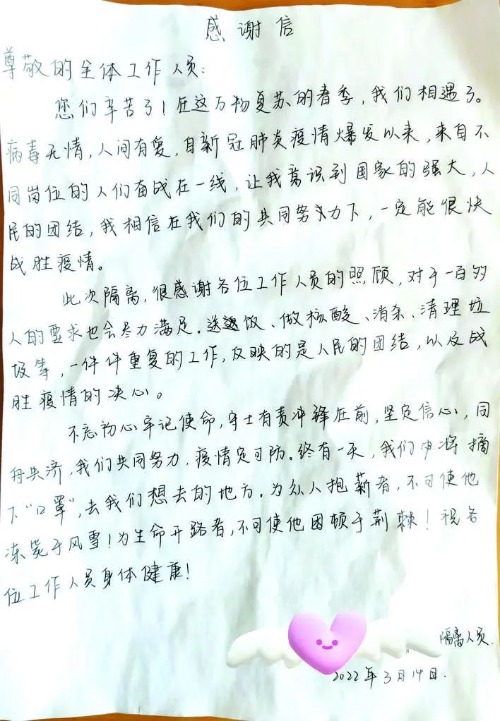 感谢信
尊敬的全体工作人员:
您们辛苦了!在这万物复苏的春季,我们相遇了。
病毒无情,人间有爱,自新冠肺炎疫情爆发以来,来自不
同岗位的人们奋战在一线,让我意识到国家的强大,人
民的团结,我相信在我们的共同努力下,一定能很快
战胜疫情。
此次隔离,很感谢各位工作人员的照顾,对于一百多
人的要求也会尽力满足。送饭、做核酸、消杀、清理垃
圾等,一件件重复的工作,反映的是人民的团结,以及战
胜疫情的决心。
不忘初心牢记使命,守土有责冲锋在前,坚定信心,同
舟共济,我们共同努力,疫情定可防。终有一天,我们中将摘
下“口罩”,去我们想去的地方。为众人抱薪者,不可使他
冻毙于风雪!为生命开路者,不可使他困顿于荆棘!祝各
位工作人员身体健康!
隔离人员.
2022年3月14日.